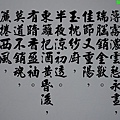 薄霧濃雲愁永晝
瑞腦銷金獸
佳節又重陽
玉枕紗廚
半夜涼初透
東籬把酒黃昏後
有暗香盈袖
莫道不銷魂
簾捲西風